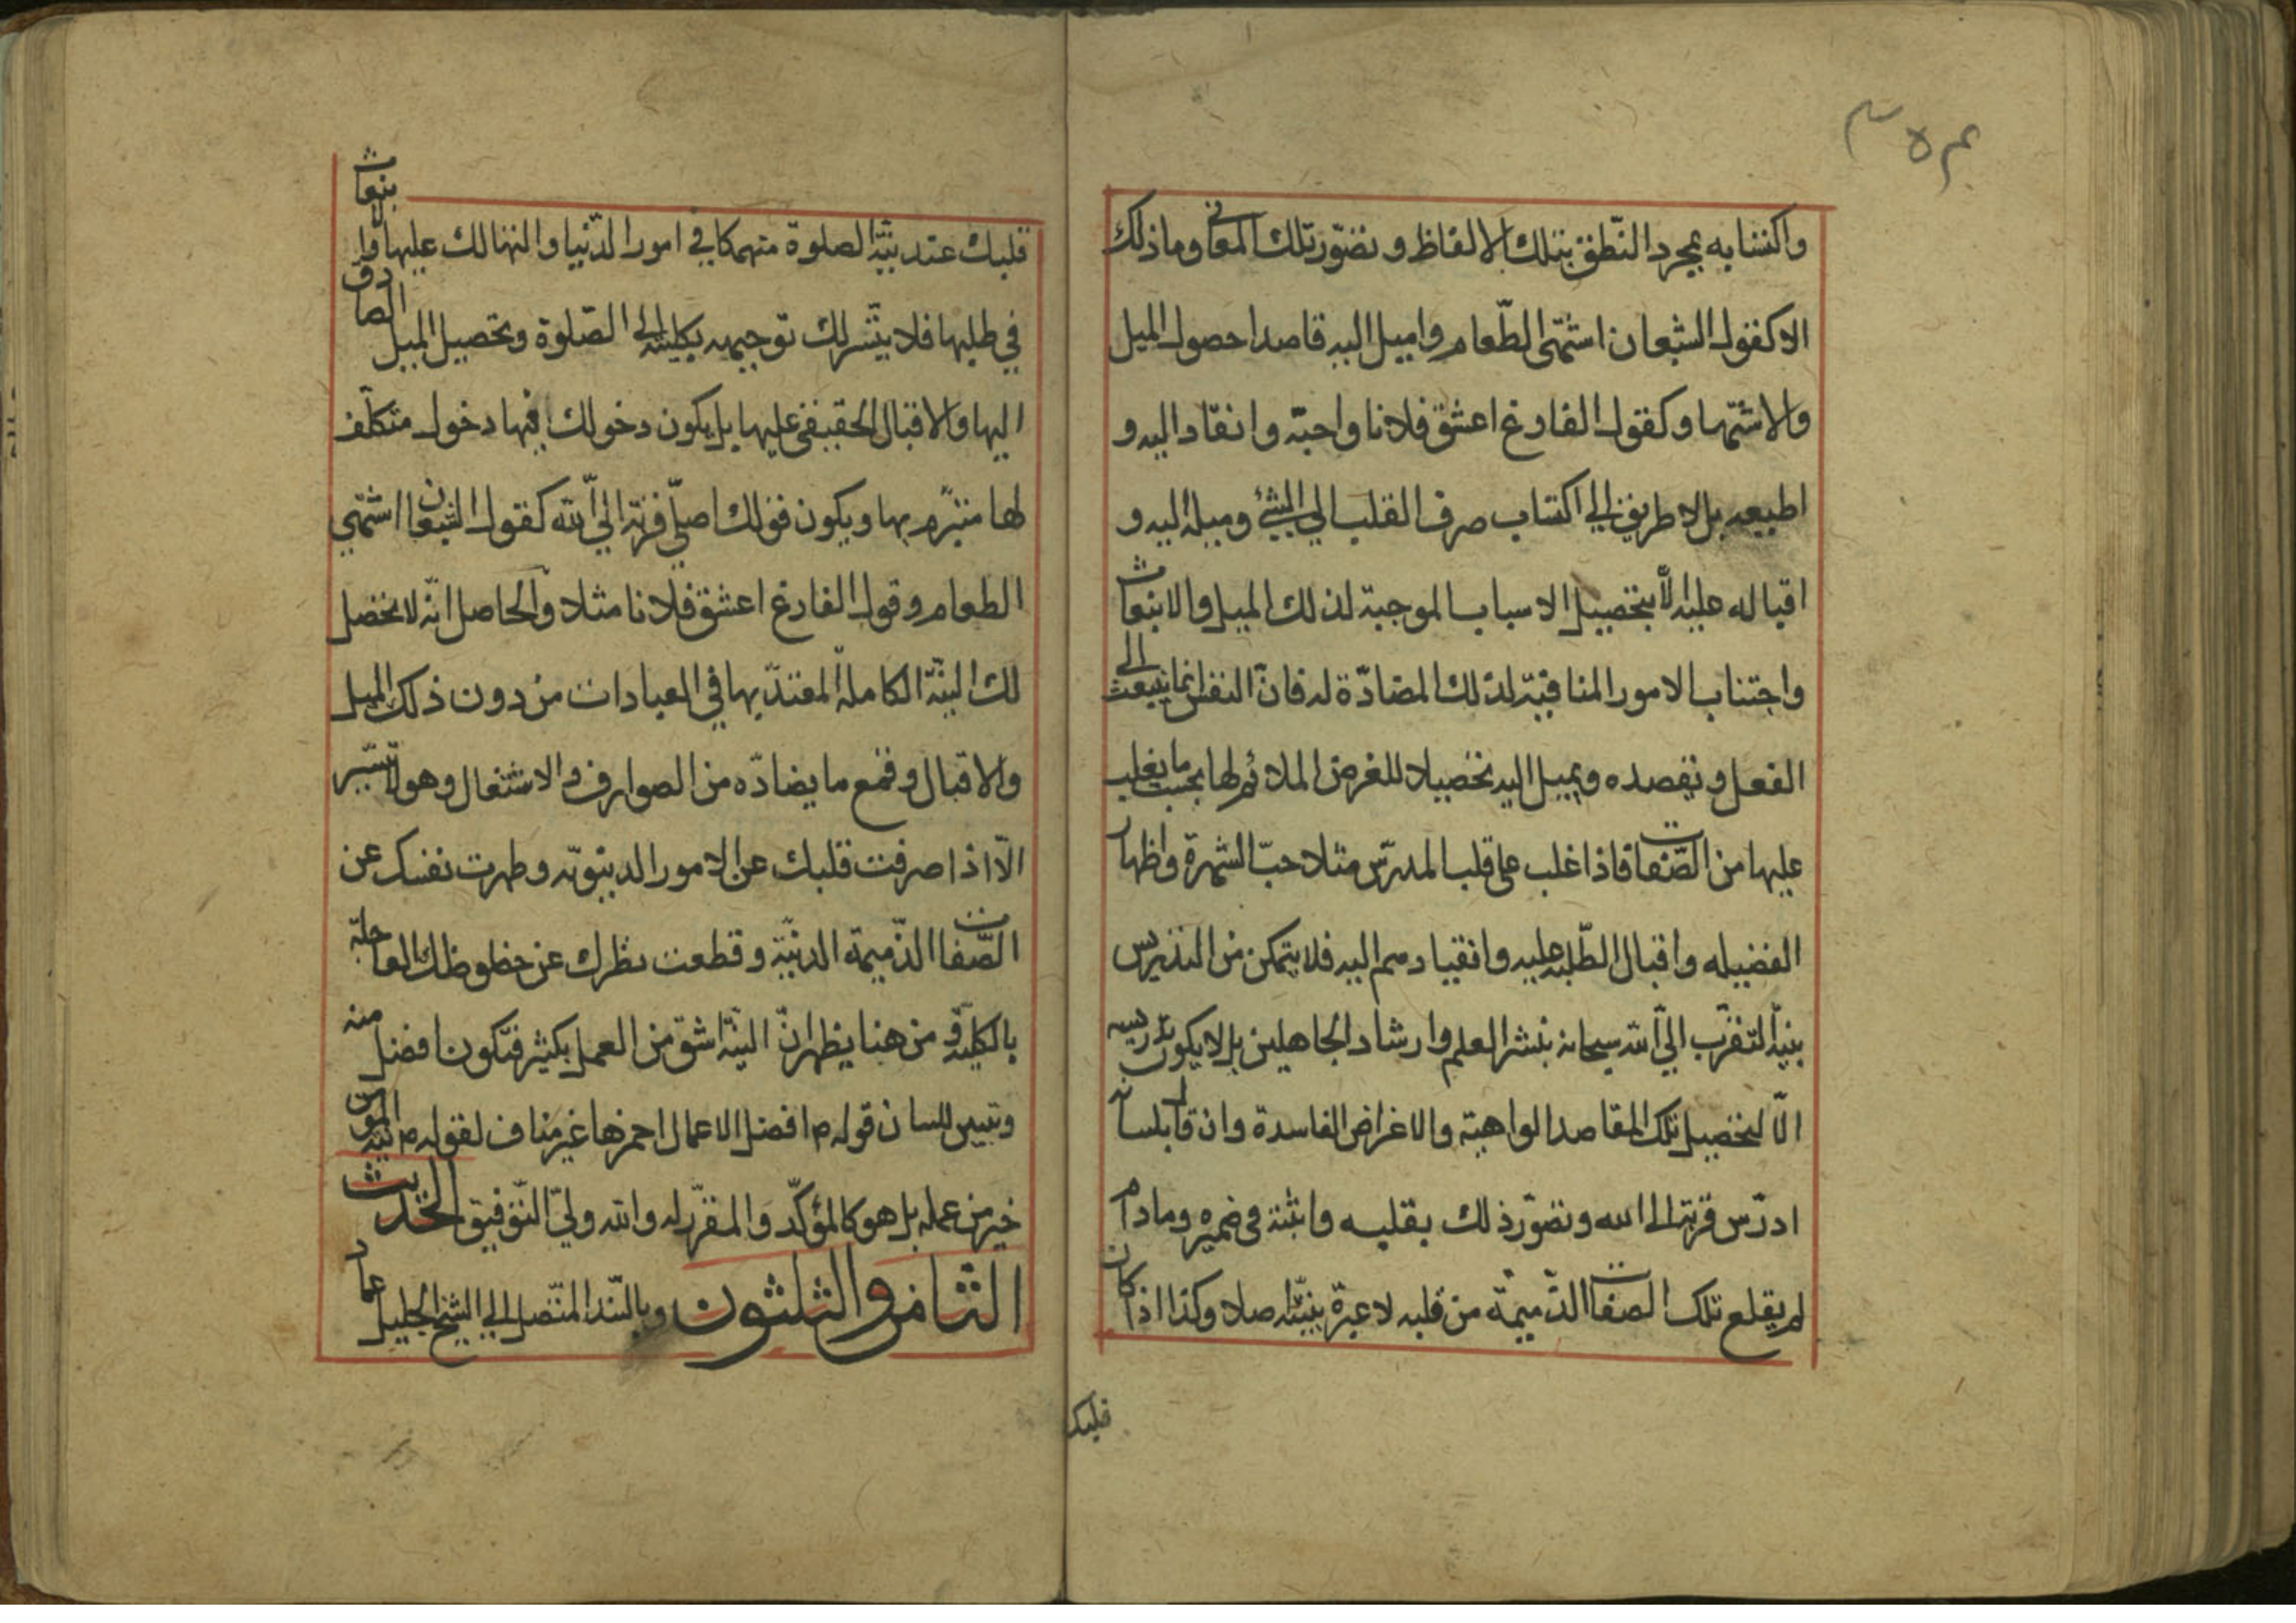 واكتسابه بمجرد النّطق بتلك الالفاظ و تصوّر تلك المعانى وما ذلك
الا كقول الشبعان اشتهى الطّعام واميل اليه قاصدا حصول الميل
والاشتها وكقول الفارغ اعشق فلانا واحبّه وانقاد اليه و
اطيعه بل لا طريق الي اكتساب صرف القلب الي الشئ وميله اليه و
اقباله عليه الّا بتحصيل الاسباب الموجبة لذلك الميل والانبعاث
واجتناب الامور المنافية لذلك المضادّة له فانّ النفس انما تنبعث الى
الفعل و تقصده و يميل اليه تحصيلا للغرض الملائم لها بحسب ما يغلب
عليها من الصّفات فاذا غلب على قلب المدرّس مثلا حبّ الشهرة واظهار
الفضيله واقبال الطّلبه عليه وانقيادهم اليه فلا يتمكن من التدريس
بنيّة التقرّب الي اللّه سبحانه بنشر العلم وارشاد الجاهلين بل لا يكون تدريسه
الّا لتحصيل تلك المقاصد الواهية والاغراض الفاسدة وان قال بلسانه
ادرّس قربة الى الله وتصوّر ذلك بقلبه واثبته فى ضميره ومادام
لم يقلع تلك الصفات الذّميمّة من قلبه لا عبرة بنيّته اصلا وكذا اذا كان
قلبك
قلبك عند نيّة الصلوة منهمكا في امور الدّنيا والتهالك عليها والانبعاث
في طلبها فلا يتيسّر لك توجيهه بكليّته الى الصّلوة وتحصيل الميل الصادق
اليها والاقبال الحقيقى عليها بل يكون دخولك فيها دخول متكلّف
لها متبرّم بها ويكون قولك اصلّي قربة الي اللّه كقول الشبعان اشتهي
الطعام وقول الفارغ اعشق فلانا مثلا والحاصل انّه لا تحصل
لك النيّة الكاملة المعتدّ بها في العبادات من دون ذلك الميل
والاقبال وقمع ما يضادّه من الصوارف والاشتغال وهو لا يتيسّر
الّا اذا صرفت قلبك عن الامور الدنيويّه وطهرت نفسك عن
الصّفات الذّميمة الدنيّة وقطعت نظرك عن حظوظك العاجلة
بالكليّة و من هنا يظهر انّ النيّة اشقّ من العمل بكثير فتكون افضل منه
وتبيين لك ان قوله ص افضل الاعمال احمزها غير مناف لقوله ص نيّة المؤمن
خير من عمله بل هو كالمؤكّد والمقرّر له والله وليّ التّوفيق الحديث
الثّامن والثلثون وبالسّند المتّصل الي الشيخ الجليل عماد